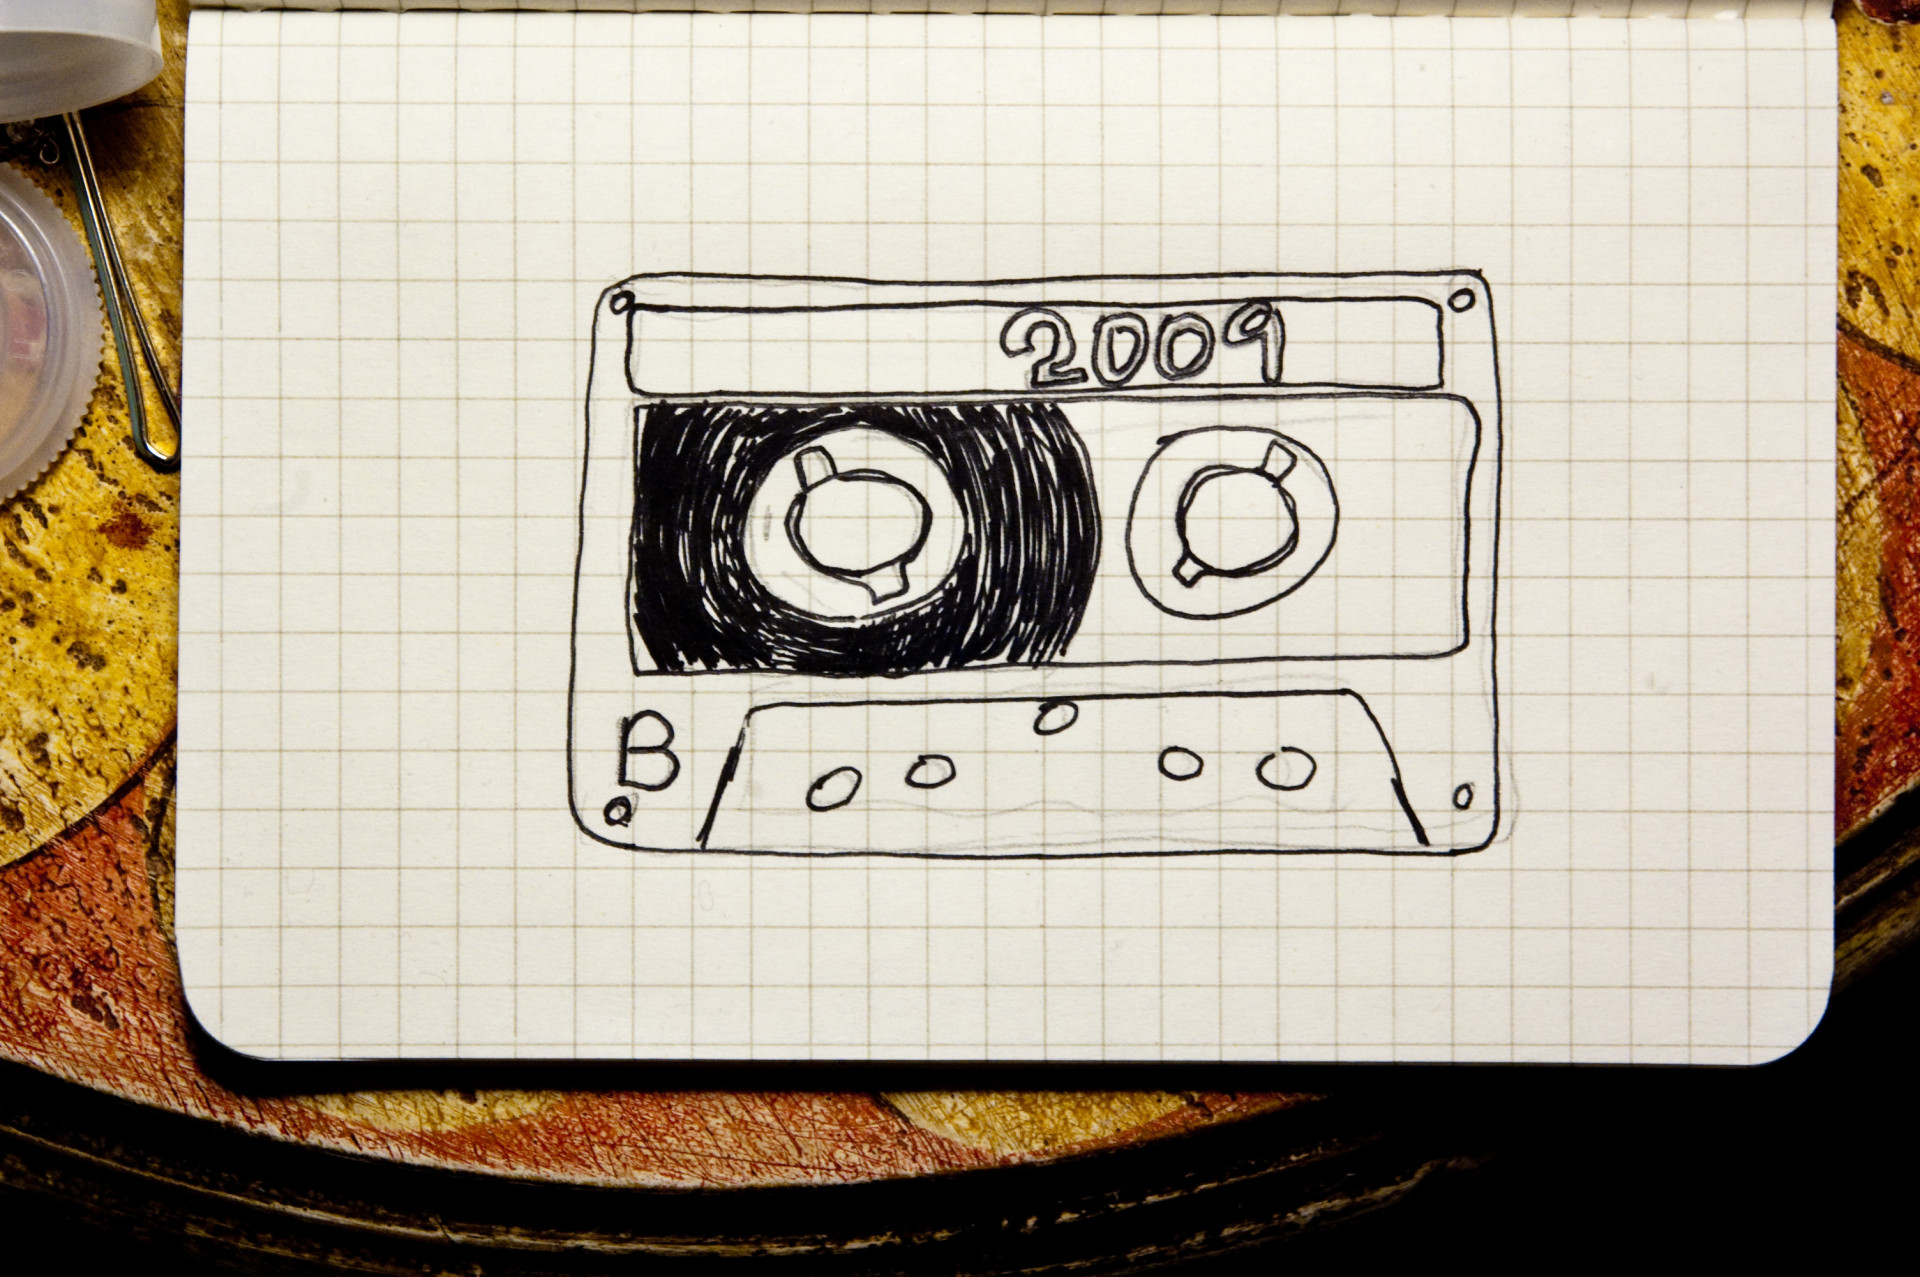 2009
B